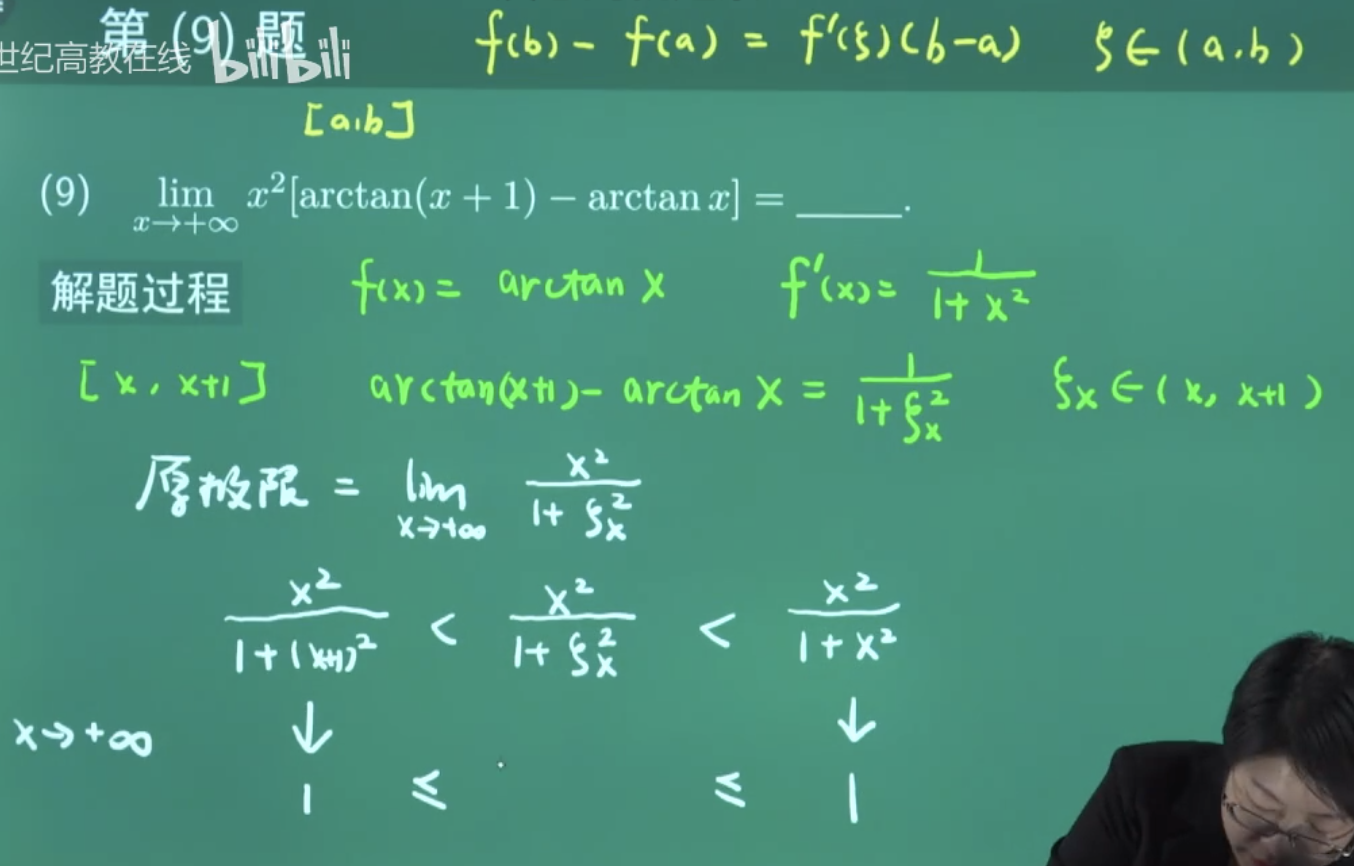 第 (9) 题 f(b) - f(a) = f'(ξ)(b-a) ξ∈(a,b)
世纪高教在线 bilibili
[a,b]
(9) lim x→+∞ x²[arctan(x + 1) − arctan x] = ______.
解题过程 f(x) = arctan x f'(x) = 1/(1+x²)
[x, x+1] arctan(x+1) - arctan x = 1/(1+ξₓ²) ξₓ∈(x, x+1)
原极限 = lim x→+∞ x²/(1+ξₓ²)
x²/(1+(x+1)²) < x²/(1+ξₓ²) < x²/(1+x²)
x→+∞ ↓ ↓
1 ≤ ≤ 1